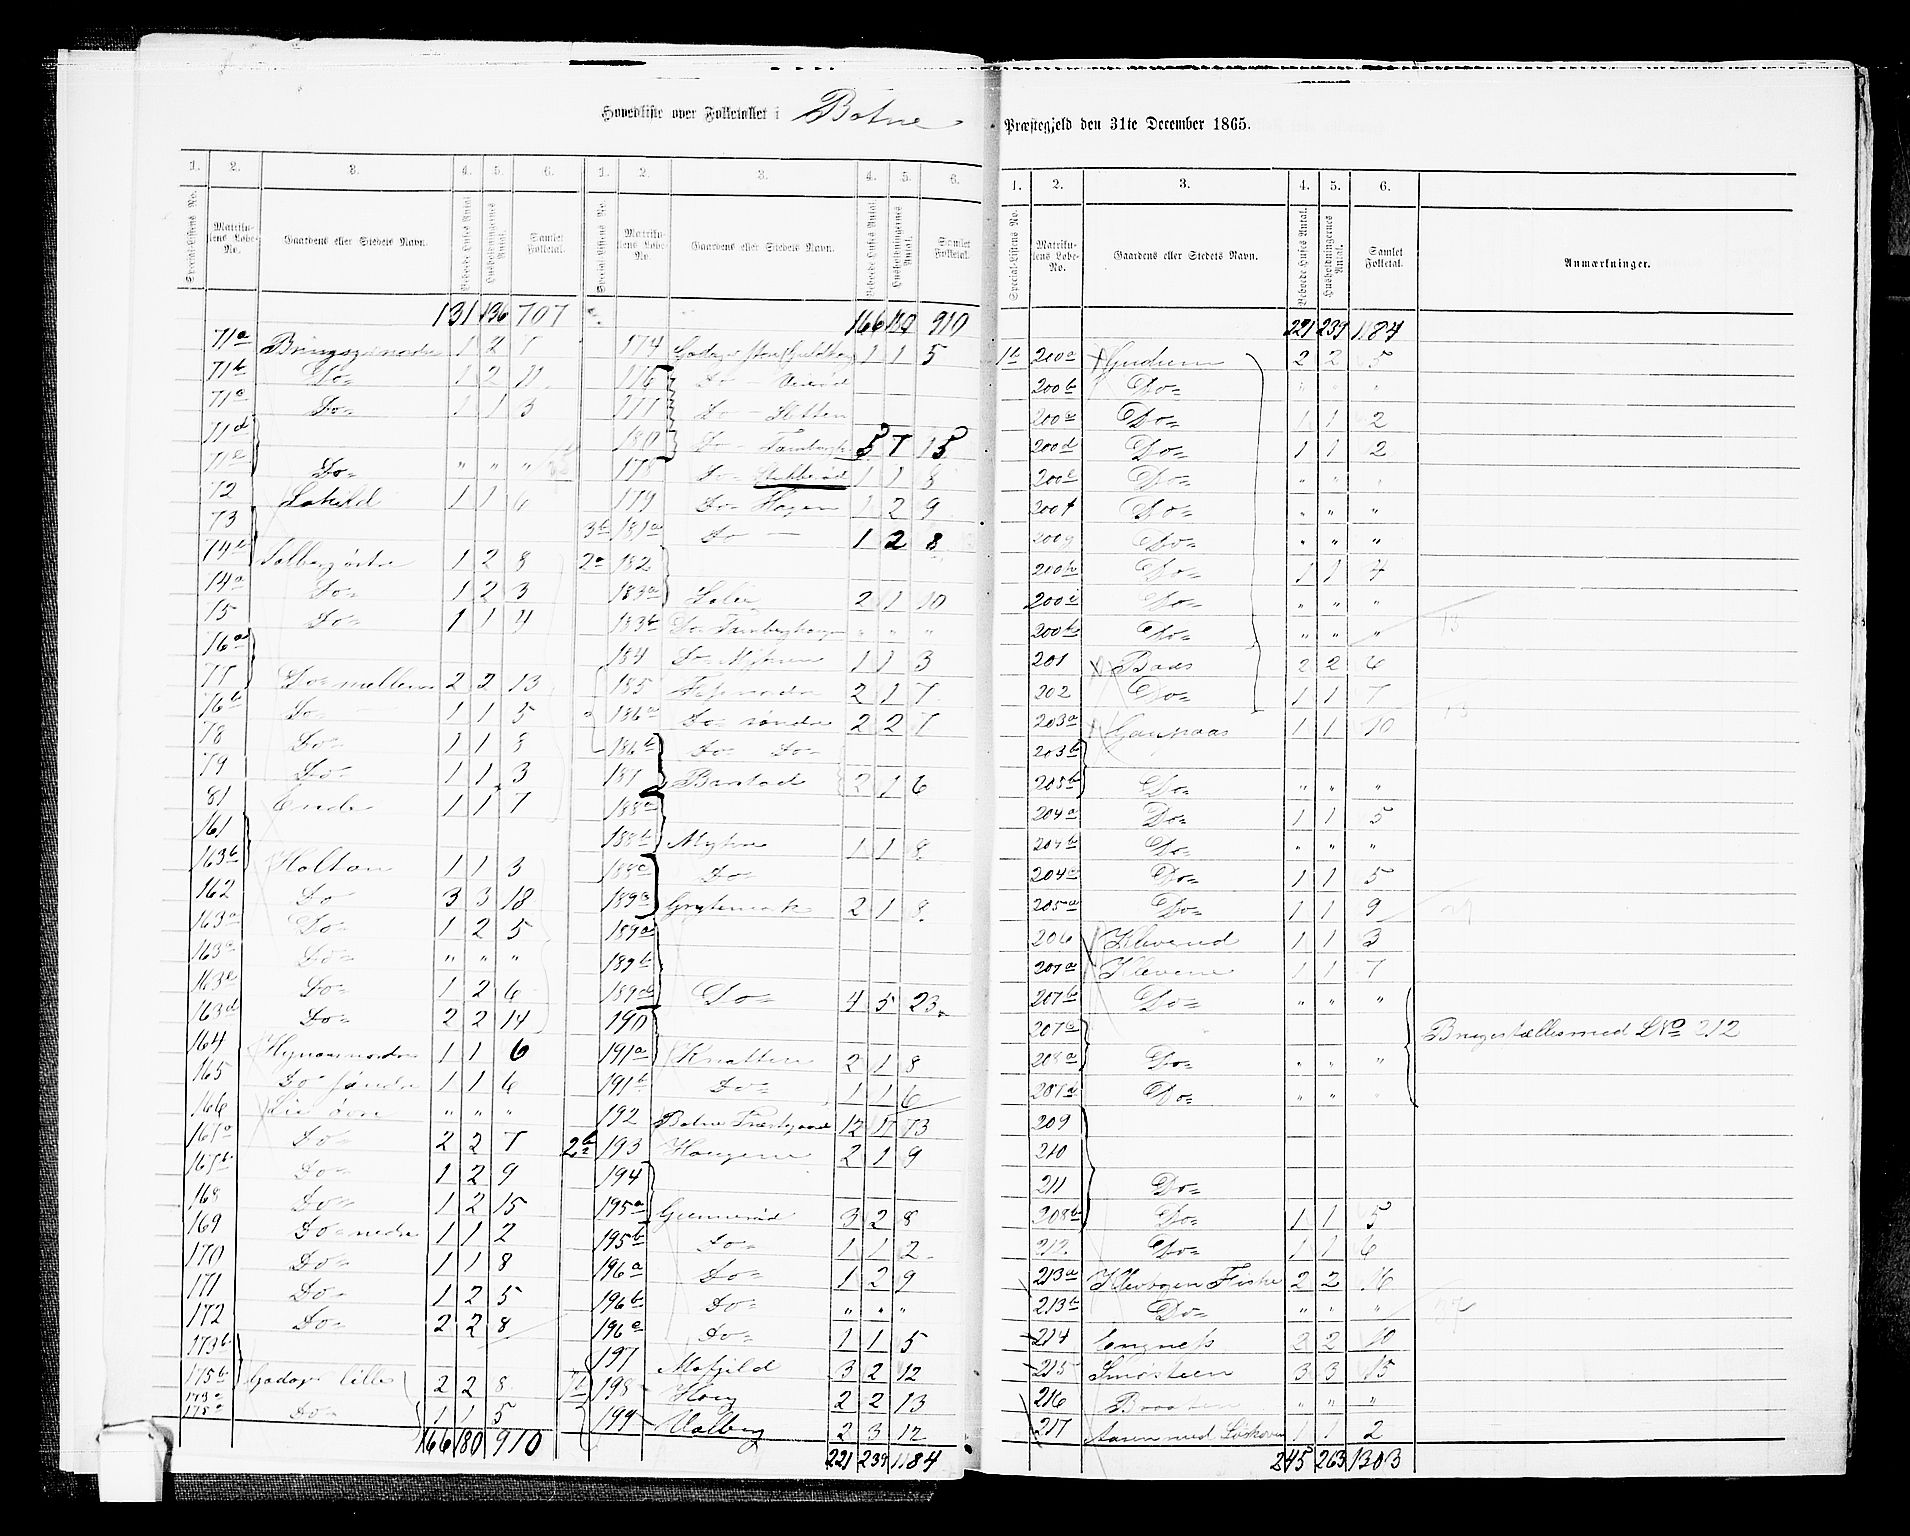 Hovedliste over Folketallet i Botne
1. 2. 3. 4. 5. 6. 1. 2. 3. 4. 5. 6.
Special-Listens No. Matrikulens Løbe-No. Gaardens eller Stedets Navn. Beboede Huses Antal. Husholdningernes Antal. Samlet Folketal. Special-Listens No. Matrikulens Løbe-No. Gaardens eller Stedets Navn. Beboede Huses Antal. Husholdningernes Antal. Samlet Folketal.
131 136 707
71a 1 2 7
71b Do= 1 2 11
71c Do= 1 1 3
71d
71e Do= " " "
72 1 1 6
73
74b 1 2 8
74a Do= 1 2 3
75 Do= 1 1 4
76a
77 Do= mellem 2 2 13
76b Do= 1 1 5
78 Do= 1 1 8
79 Do= 1 1 3
81 1 1 7
161
163b Holtan 1 1 3
162 Do 3 3 18
163a Do= 1 2 5
163c Do= " " "
163e Do= 1 2 6
163d Do= 2 2 14
164 1 1 6
165 Do= søndre 1 1 6
166 Lie øvre " " "
167a Do= 2 2 7
167b Do= 1 2 9
168 Do= 1 2 15
169 Do= nedre 1 1 2
170 Do= 1 1 8
171 Do= 1 2 5
172 Do= 2 2 8
173b
175b Gadager lille 2 2 8
173a
175a Do= 1 1 5
166 180 910
166 180 910
174 1 1 5
176 Do
177 Do
180 Do 5 7 15
178 Do 1 1 8
179 Do= Hagen 1 2 9
3b 181a Do 1 2 8
2a 182
183a 2 1 10
183b " " "
184 Do= Myhren 1 1 3
185 2 1 7
186a Do= søndre 2 2 7
186b Do= Do=
187 Barstad 2 1 6
188a
188b Myhre 1 1 8
188c Do=
189c 2 1 8
189a
189b
189d Do= 4 5 23
190
191a Knatten 2 1 8
191b Do= 1 1 6
192 Botne Præstgaard 12 17 73
193 Haugene 2 1 9
194
195a Grennerød 3 2 8
195b Do= 1 1 2
196a Do= 1 2 9
196b Do= " " "
196c Do= 1 1 5
197 Mofjeld 3 2 12
198 Houg 2 2 13
199 Valberg 2 3 12
221 239 1184
Præstegjeld den 31te December 1865.
1. 2. 3. 4. 5. 6.
Special-Listens No. Matrikulens Løbe-No. Gaardens eller Stedets Navn. Beboede Huses Antal. Husholdningernes Antal. Samlet Folketal. Anmærkninger.
221 239 1184
1b 200a Gudum 2 2 5
200b Do= " " "
200c Do= 1 1 2
200d Do= 1 1 2
200e Do= " " "
200f Do= " " "
200g Do= " " "
200h Do= 1 1 4
200i Do= " " "
200k Do= " " "
201 Baas 2 2 6
202 Do= 1 1 7
203a Gaupaas 1 1 10
203b
205b Do= " " "
204a Do= 1 1 5
204b Do= " " "
204c Do= 1 1 5
205a Do= 1 1 9
206 Kleverud 1 1 3
207a Klevene 1 1 7
207b Do= " " "
207c " Bruges tælles med LNo 212
208a Do= " " "
Do= " " "
209
210
211 Do=
208b Do= 1 1 5
212 Do= 1 1 6
213a 2 2 16
213b Do= " " "
214 Engnes 2 2 10
215 Smørsteen 3 3 15
216 Braaten " " "
217 1 1 2
245 263 1303